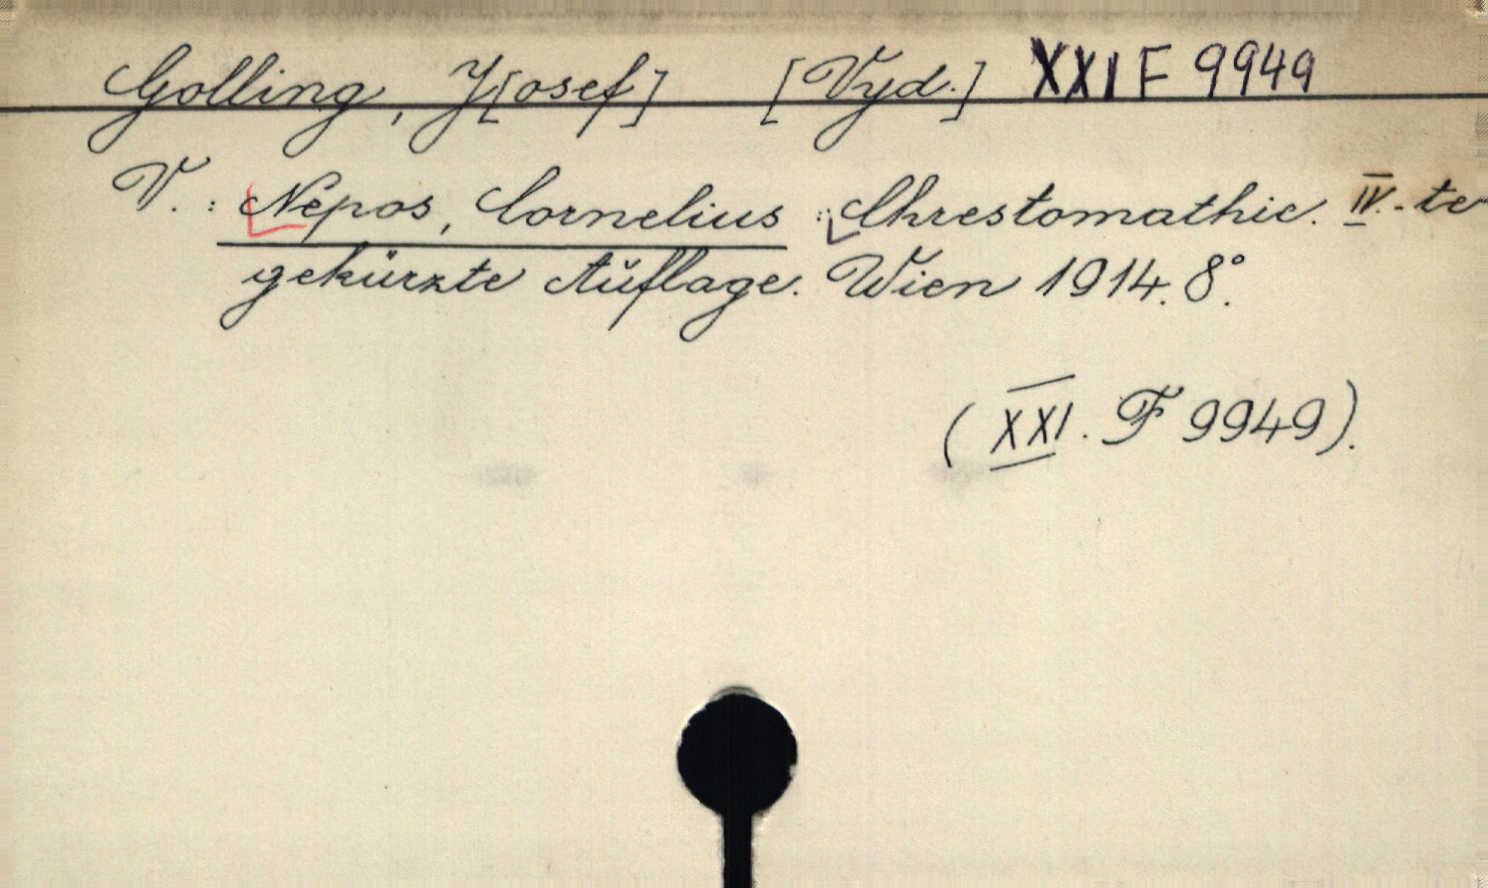 Golling, J[osef] [Vyd.] XXI F 9949
V.: Nepos, Cornelius: Chrestomathie. IV.-te
gekürzte Auflage. Wien 1914. 8°.
(XXI. F 9949).